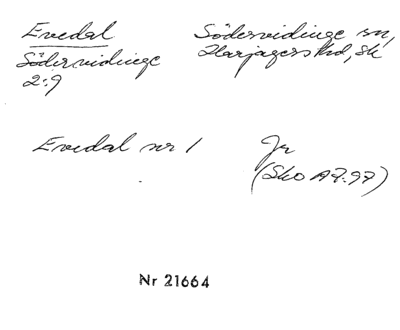 Evedal
Södervidinge sn,
Södervidinge
Harjagers hd, Sk
2:9
Evedal nr 1
Jr
(Sko A7:97)
Nr 21664